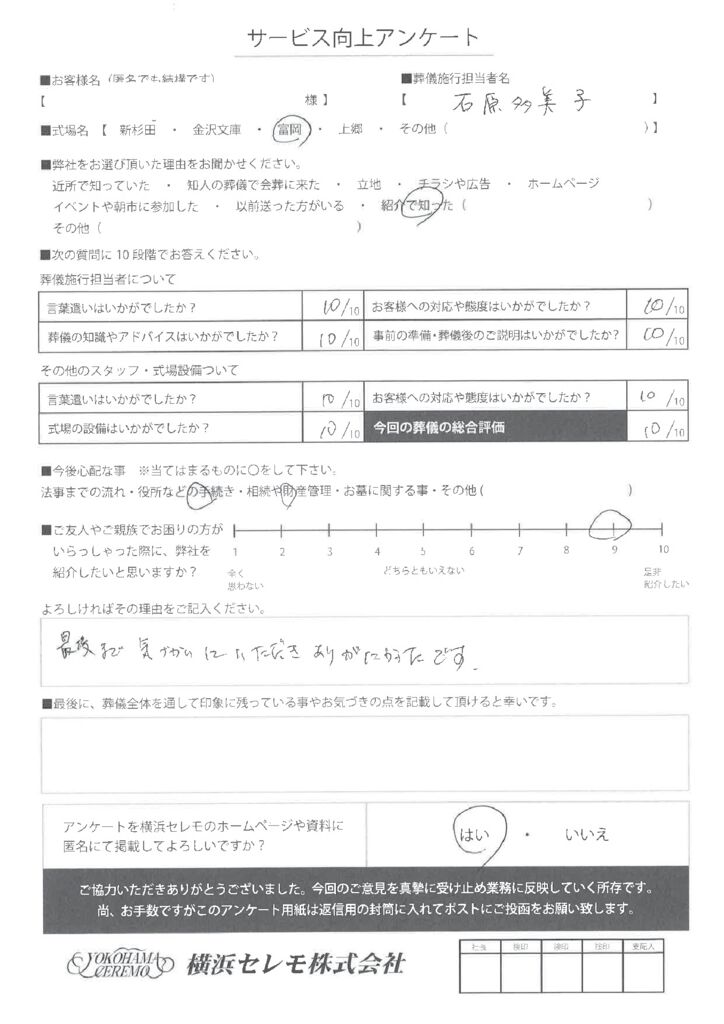 サービス向上アンケート
■お客様名（匿名でも結構です） ■葬儀施行担当者名
【 様】 【 石原多美子 】
■式場名【 新杉田 ・ 金沢文庫 ・ 富岡 ・ 上郷 ・ その他（ ）】
■弊社をお選び頂いた理由をお聞かせください。
近所で知っていた ・ 知人の葬儀で会葬に来た ・ 立地 ・ チラシや広告 ・ ホームページ
イベントや朝市に参加した ・ 以前送った方がいる ・ 紹介で知った（ ）
その他（ ）
■次の質問に10段階でお答えください。
葬儀施行担当者について
言葉遣いはいかがでしたか？ 10/10 お客様への対応や態度はいかがでしたか？ 10/10
葬儀の知識やアドバイスはいかがでしたか？ 10/10 事前の準備・葬儀後のご説明はいかがでしたか？ 10/10
その他のスタッフ・式場設備ついて
言葉遣いはいかがでしたか？ 10/10 お客様への対応や態度はいかがでしたか？ 10/10
式場の設備はいかがでしたか？ 10/10 今回の葬儀の総合評価 10/10
■今後心配な事 ※当てはまるものに○をして下さい。
法事までの流れ・役所などの手続き・相続や財産管理・お墓に関する事・その他（ ）
■ご友人やご親族でお困りの方が
いらっしゃった際に、弊社を
紹介したいと思いますか？
1 2 3 4 5 6 7 8 9 10
全く
思わない
どちらともいえない
是非
紹介したい
よろしければその理由をご記入ください。
最後まで 気づかいいただき ありがたかったです。
■最後に、葬儀全体を通して印象に残っている事やお気づきの点を記載して頂けると幸いです。
アンケートを横浜セレモのホームページや資料に
匿名にて掲載してよろしいですか？
はい ・ いいえ
ご協力いただきありがとうございました。今回のご意見を真摯に受け止め業務に反映していく所存です。
尚、お手数ですがこのアンケート用紙は返信用の封筒に入れてポストにご投函をお願い致します。
YOKOHAMA
CEREMO
横浜セレモ株式会社
社長 検印 検印 検印 支配人